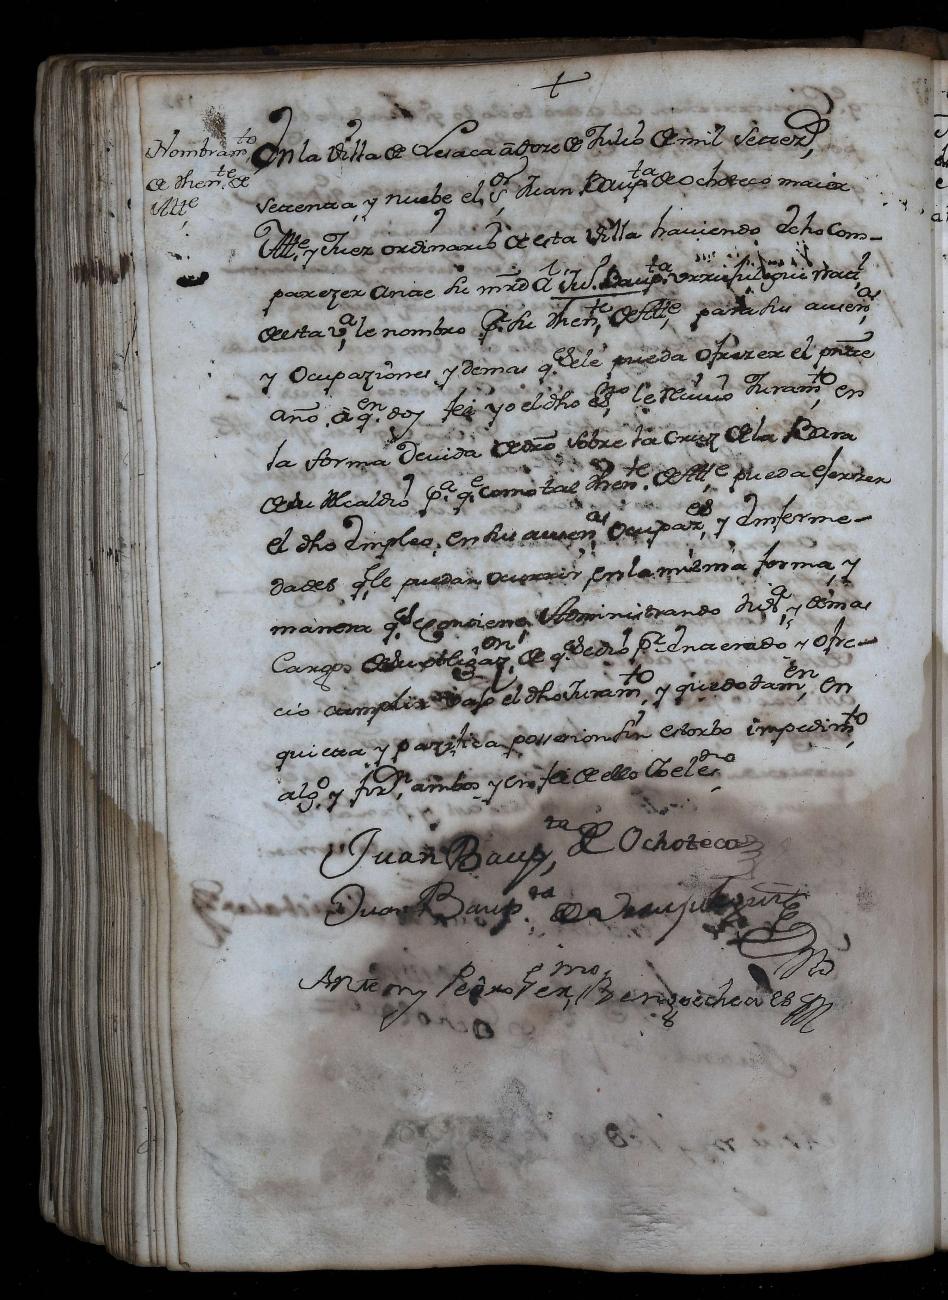 +
Nombram.to
de Then.te de
Alte
En la Villa de Lesaca a doze de Julio de mil setez.s
setenta, y nuebe el s.or Juan Baup.ta de Ochoteco maior
Alte, y Juez ordinario de esta Villa haviendo dcho com-
parezer antte su mrd a Ju.n Baup.ta
de esta v.a le nombro p.r su Then.te de Alte, para sus ausen.as
y Ocupaziones, y demas q.e se le pueda ofrezer el pnte
año, de q.e doy fee yo el dho es.no le recivio Juram.to en
la forma devida de dro sobre la Cruz de la Bara
de su Alcaldio p.a q.e como tal Then.te de Alte pueda ejerzer
el dho Empleo, en sus ausen.as Ocupaz.es y Enferme-
dades q.e le puedan ocurrir, en la misma forma, y
manera q.e Combiene, Administrando Just.a y demas
Cargos de su obligaz.on de q.e se dio p.r Encarado y ofre-
cio cumplir vajo el dho Juram.to y quedo tam.en en
quieta y pazifica possesion sin estorbo impedim.to
alg.o y fir.n ambos y en fee de ello Yo el es.no
Juan Baup.ta de Ochoteco
Juan Baup.ta de
Antemy Pedro Ger.mo Bengoechea es.no